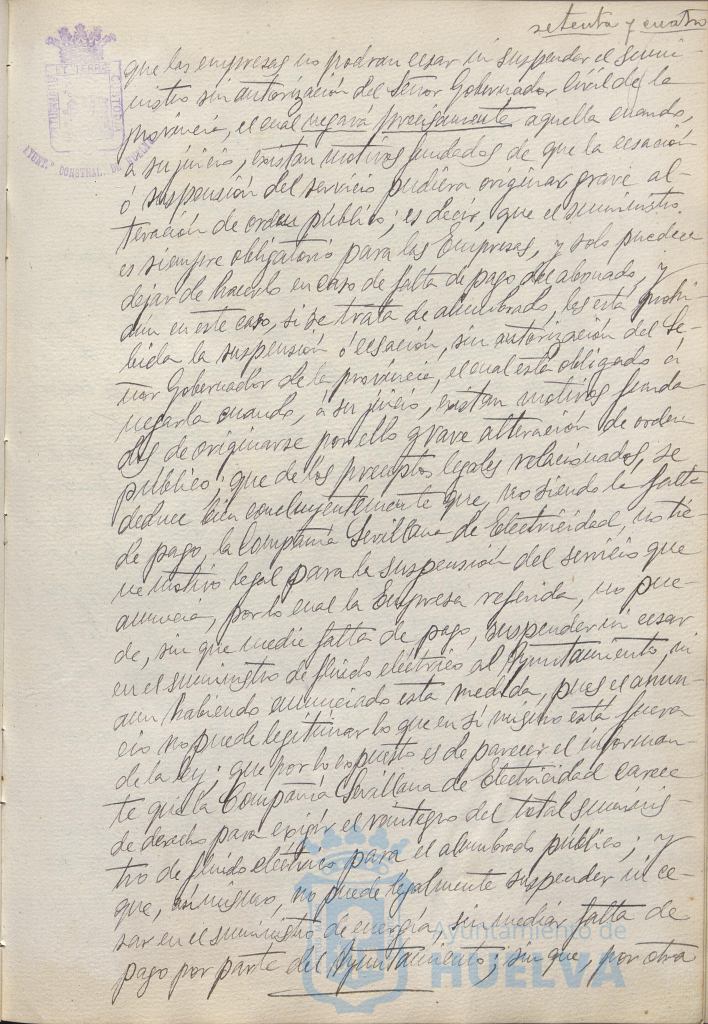 setenta y cuatro
que las empresas no podran cesar ni suspender el sumi-
nistro sin autorización del Señor Gobernador Civil de la
provincia, el cual negará precisamente aquella cuando,
á su juicio, existan motivos fundados de que la cesación
ó suspensión del servicio pudiera originar grave al-
teración de orden público; es decir, que el suministro
es siempre obligatorio para las Empresas, y solo pueden
dejar de hacerlo en caso de falta de pago del abonado, y
aun en este caso, si se trata de alumbrado, les está prohi-
bida la suspensión ó cesación, sin autorización del Se-
ñor Gobernador de la provincia, el cual está obligado á
negarla cuando, á su juicio, existan motivos funda
dos de originarse por ello grave alteración de orden
público; que de los preceptos legales relacionados, se
deduce bien concluyentemente que, no siendo la falta
de pago, la Compañía Sevillana de Electricidad, no tie-
ne motivo legal para la suspensión del servicio que
anuncia, por lo cual la Empresa referida, no pue-
de, sin que medie falta de pago, suspender ni cesar
en el suministro de fluido eléctrico al Ayuntamiento, ni
aun habiendo anunciado esta medida, pues el anun-
cio no puede legitimar lo que en sí mismo está fuera
de la ley; que por lo expuesto es de parecer el informan-
te que la Compañía Sevillana de Electricidad carece
de derecho para exigir el reintegro del total suminis-
tro de fluido eléctrico para el alumbrado público; y
que, asimismo, no puede legalmente suspender ni ce-
sar en el suministro de energía, sin mediar falta de
pago por parte del Ayuntamiento; sin que, por otra
AYUNT.º CONSTNAL. DE HUELVA
Ayuntamiento de
HUELVA